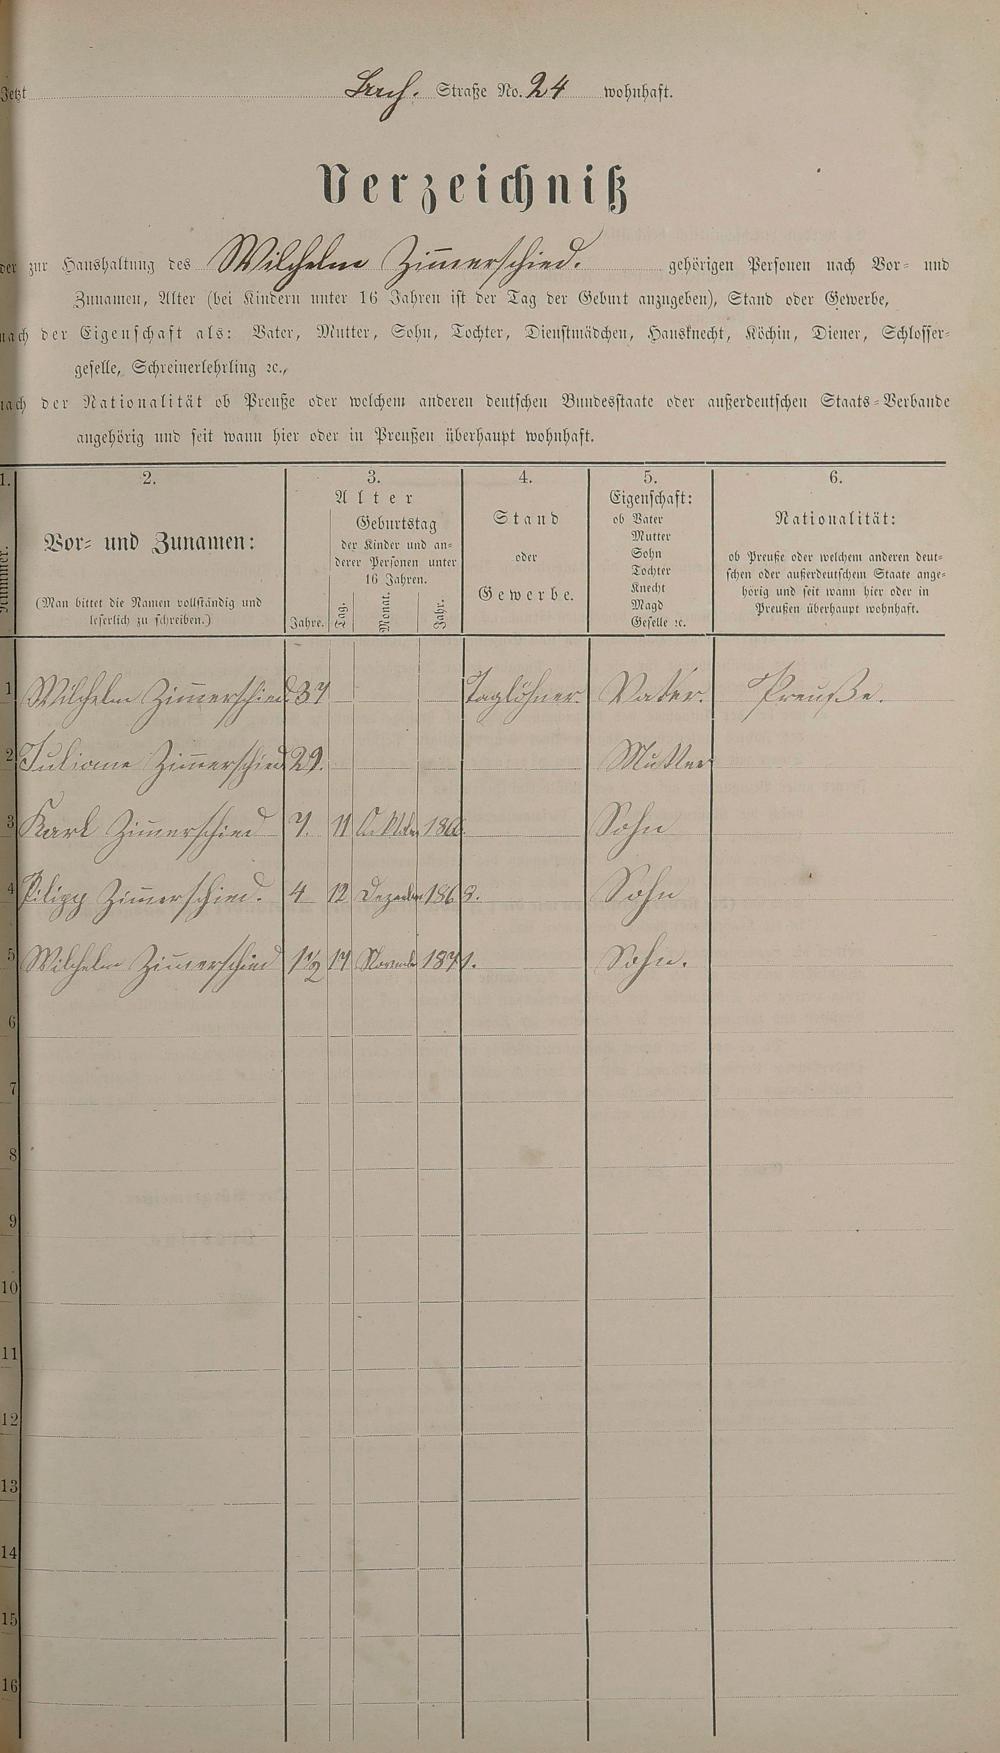 Jetzt Bach. Straße No. 24 wohnhaft.
Verzeichniß
der zur Haushaltung des Wilhelm Zim̄erschied. gehörigen Personen nach Vor- und
Zunamen, Alter (bei Kindern unter 16 Jahren ist der Tag der Geburt anzugeben), Stand oder Gewerbe,
nach der Eigenschaft als: Vater, Mutter, Sohn, Tochter, Dienstmädchen, Hausknecht, Köchin, Diener, Schlosser-
geselle, Schreinerlehrling ꝛc.,
nach der Nationalität ob Preuße oder welchem anderen deutschen Bundesstaate oder außerdeutschen Staats-Verbande
angehörig und seit wann hier oder in Preußen überhaupt wohnhaft.
1. 2. 3. 4. 5. 6.
Nummer.
Vor- und Zunamen:
(Man bittet die Namen vollständig und
leserlich zu schreiben.)
Alter
Jahre.
Geburtstag
der Kinder und an-
derer Personen unter
16 Jahren.
Tag. Monat. Jahr.
Stand
oder
Gewerbe.
Eigenschaft:
ob Vater
Mutter
Sohn
Tochter
Knecht
Magd
Geselle ꝛc.
Nationalität:
ob Preuße oder welchem anderen deut-
schen oder außerdeutschem Staate ange-
hörig und seit wann hier oder in
Preußen überhaupt wohnhaft.
1 Wilhelm Zim̄erschied. 37 Taglöhner. Vater. Preuße.
2 Juliane Zim̄erschied 29. Mutter
3 Karl Zim̄erschied 7. 11 Oktober 1866. Sohn
4 Pilipp Zim̄erschied. 4 12 Dezember 1868. Sohn
5 Wilhelm Zim̄erschied 1½ 17 November 1871. Sohn.
6
7
8
9
10
11
12
13
14
15
16